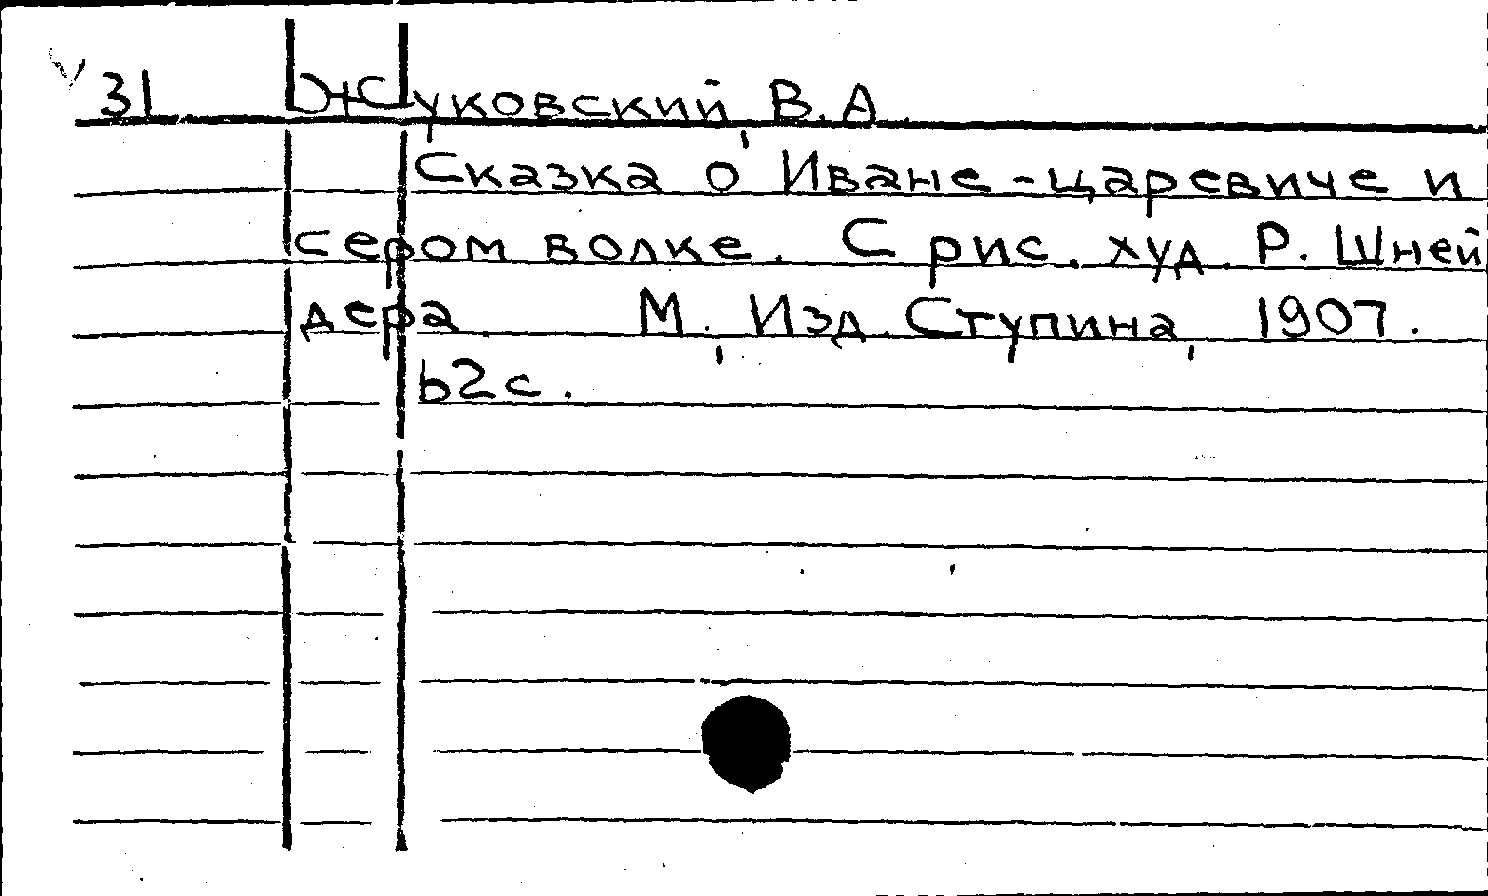 31 Жуковский, В.А.
Сказка о Иване-царевиче и
сером волке. С рис. худ. Р. Шней
дера М., Изд. Ступина, 1907.
62с.